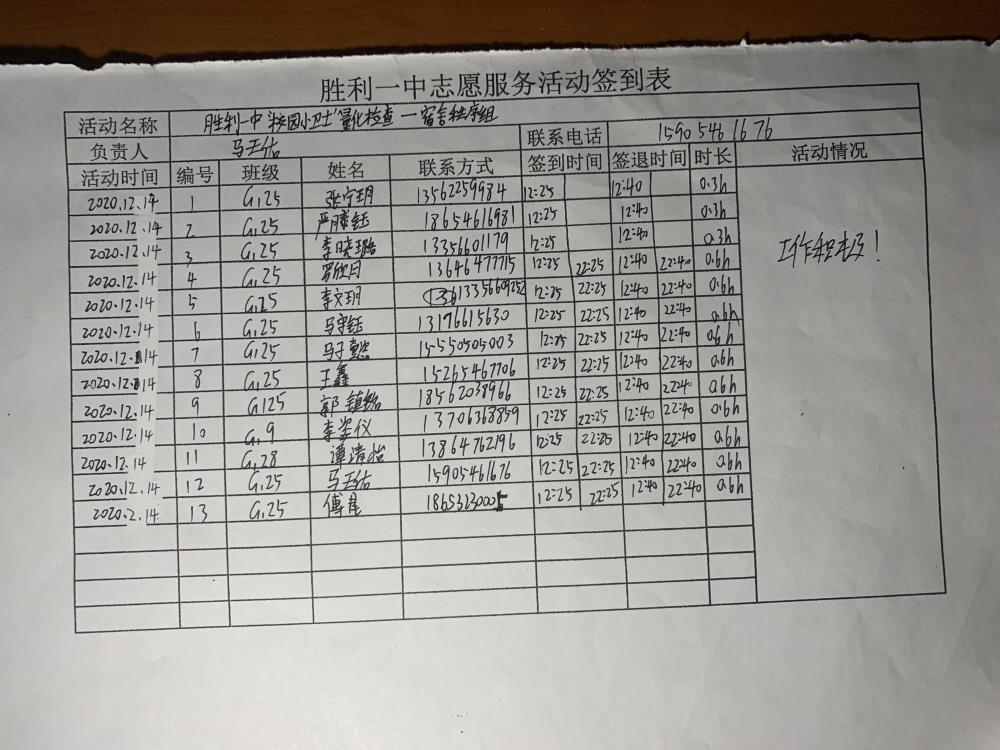 胜利一中志愿服务活动签到表
活动名称 胜利一中"校园小卫士"量化检查—宿舍秩序组
负责人 马玉佑 联系电话 15905461676
活动时间 编号 班级 姓名 联系方式 签到时间 签退时间 时长 活动情况
2020.12.14 1 G1,25 张宁玥 13562259984 12:25 12:40 0.3h
2020.12.14 2 G1,25 严膝钰 18654616981 12:25 12:40 0.3h
2020.12.14 3 G1,25 李晓璐 13356601179 12:25 12:40 0.3h
工作积极!
2020.12.14 4 G1,25 罗欣月 13646477715 12:25 22:25 12:40 22:40 0.6h
2020.12.14 5 G1,25 李文玥 13356609252 12:25 22:25 12:40 22:40 0.6h
2020.12.14 6 G1,25 马宇钰 13176615630 12:25 22:25 12:40 22:40 0.6h
2020.12.14 7 G1,25 马子懿 15550505003 12:25 22:25 12:40 22:40 0.6h
2020.12.14 8 G1,25 王鑫 15265467706 12:25 22:25 12:40 22:40 0.6h
2020.12.14 9 G1,25 郭镇铭 18562038966 12:25 22:25 12:40 22:40 0.6h
2020.12.14 10 G1,9 李姿仪 13706368859 12:25 22:25 12:40 22:40 0.6h
2020.12.14 11 G1,28 谭清怡 13864762196 12:25 22:25 12:40 22:40 0.6h
2020.12.14 12 G1,25 马玉佑 15905461676 12:25 22:25 12:40 22:40 0.6h
2020.2.14 13 G1,25 傅晨 18653230005 12:25 22:25 12:40 22:40 0.6h